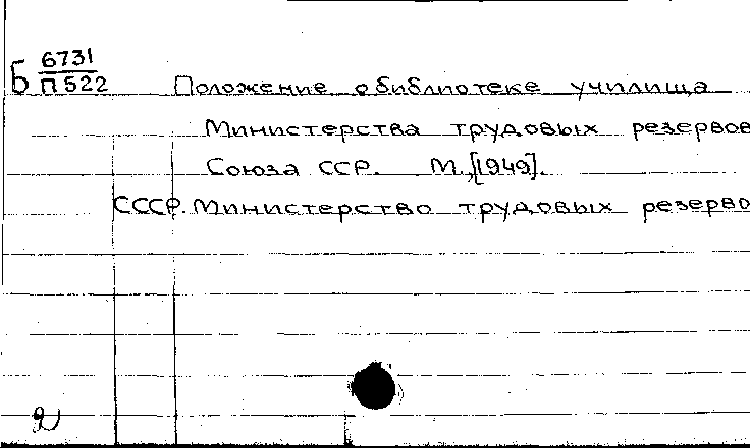 Б 6731
П522 Положение о библиотеке училища
Министерства трудовых резервов
Союза ССР. М.,[1949].
СССР. Министерство трудовых резерво